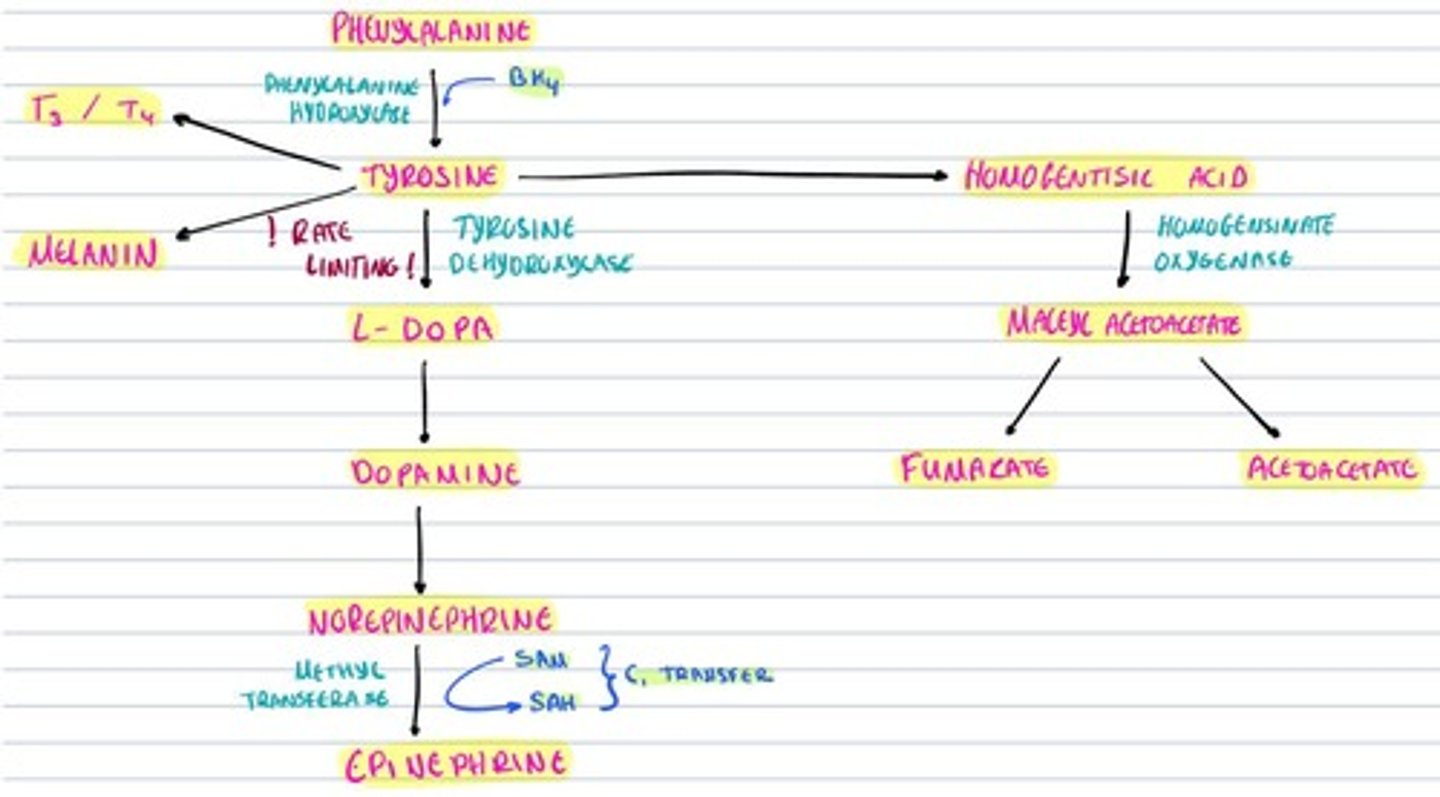 PHENYLALANINE
PHENYLALANINE
HYDROXYLASE
BH4
T3 / T4
TYROSINE
HOMOGENTISIC ACID
MELANIN
! RATE
LIMITING!
TYROSINE
DEHYDROXYLASE
HOMOGENSINATE
OXYGENASE
L-DOPA
MALEYL ACETOACETATE
DOPAMINE
FUMARATE
ACETOACETATE
NOREPINEPHRINE
METHYL
TRANSFERASE
SAM
SAH
C1 TRANSFER
EPINEPHRINE